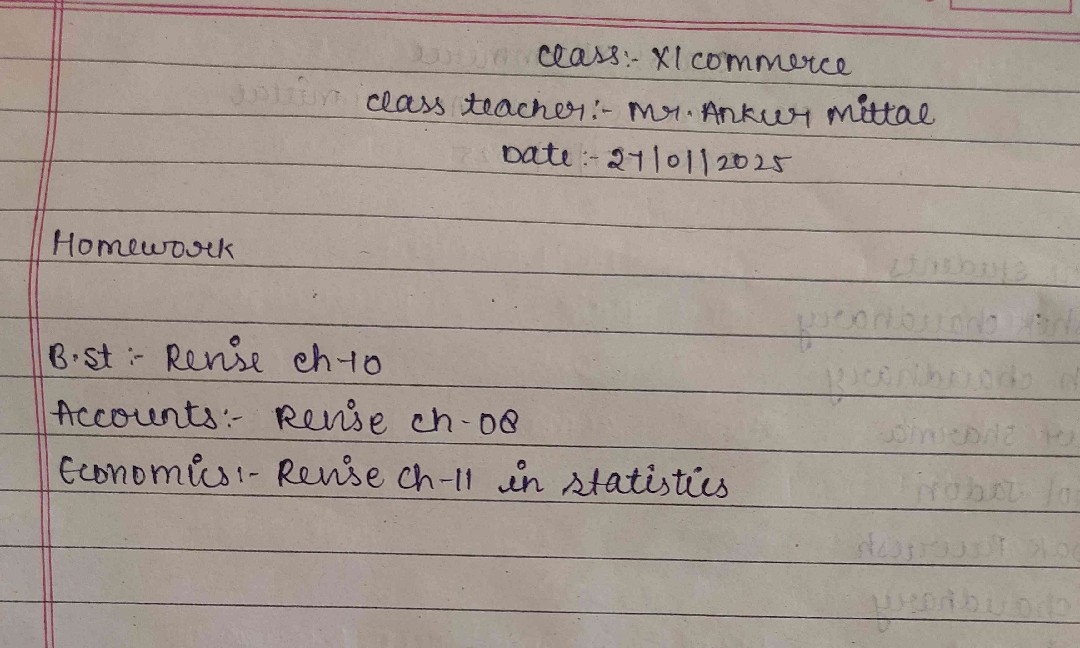 Class:- XI commerce
Class teacher:- Mr. Ankur Mittal
Date:- 27/01/2025
Homework
B.st:- Revise ch-10
Accounts:- Revise ch-08
Economics:- Revise Ch-11 in statistics